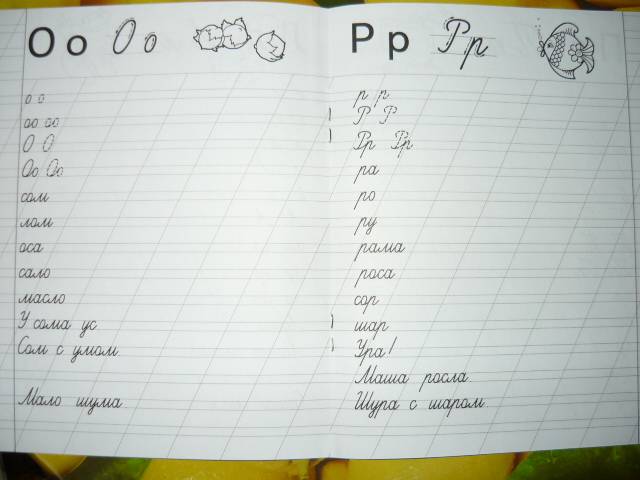 О о О о
о о
оо оо
О О
Оо Оо
сом
лом
оса
сало
масло
У сома ус.
Сом с умом.
Мало шума.
Р р Р р
р р
Р Р
Рр Рр
ра
ро
ру
рама
роса
сор
шар
Ура!
Маша росла.
Шура с шаром.